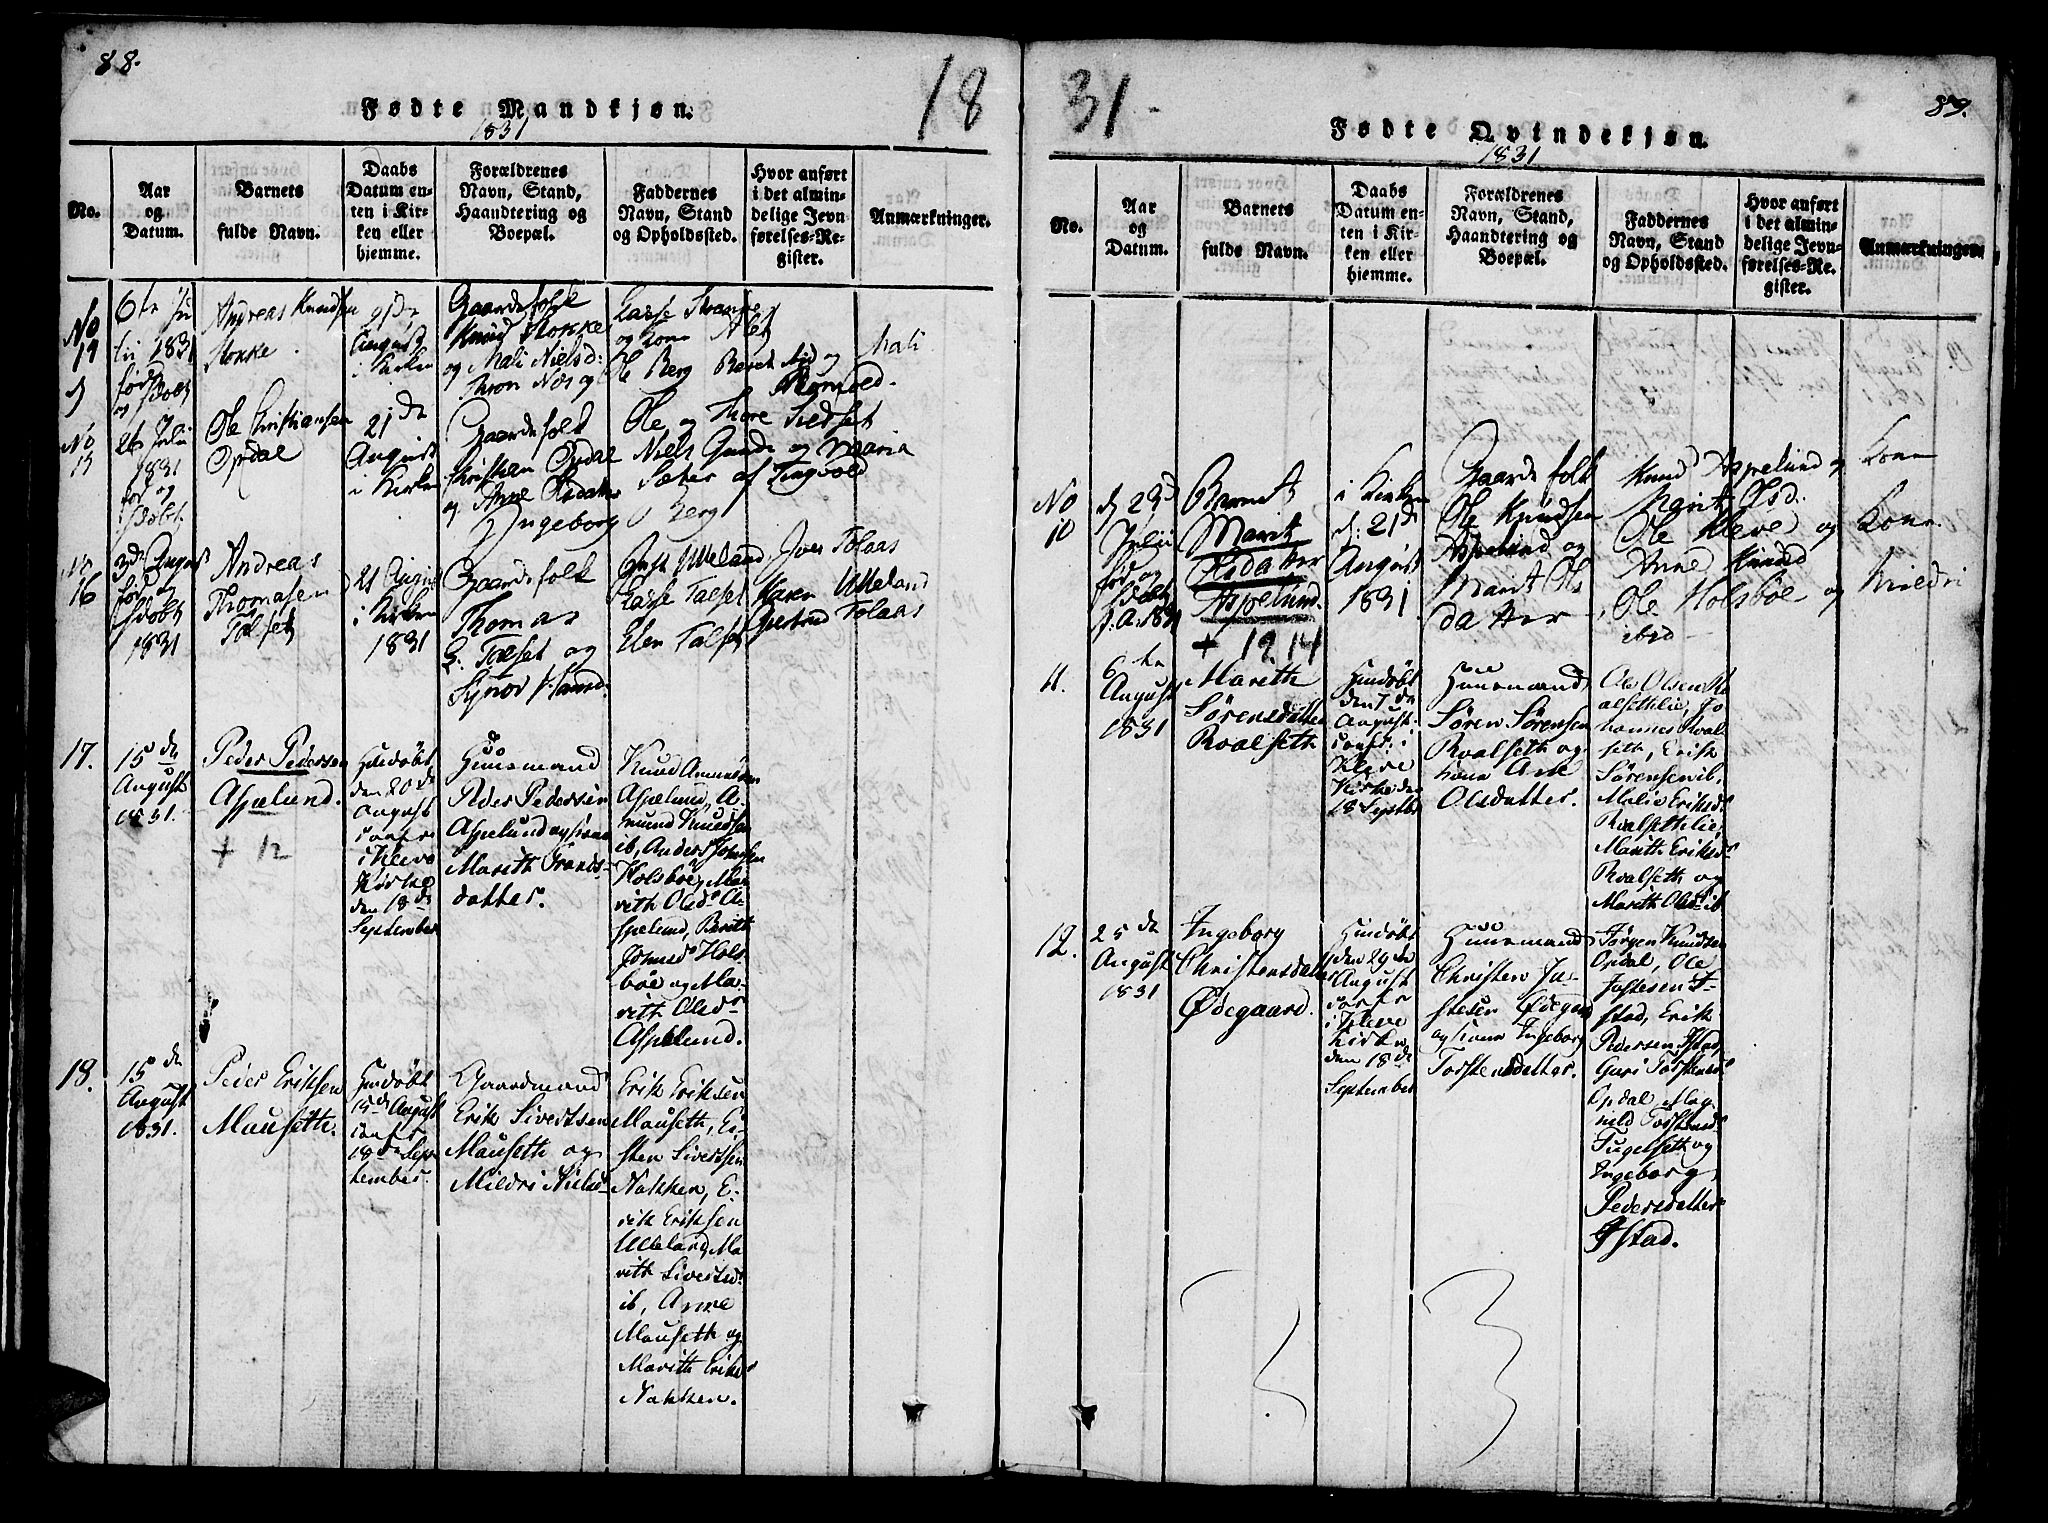 88.
18
Fødte Mandkjøn.
1831
No.
Aar
og
Datum.
Barnets
fulde Navn.
Daabs
Datum en-
ten i Kir-
ken eller
hjemme.
Forældrenes
Navn, Stand,
Haandtering og
Boepæl.
Faddernes
Navn, Stand
og Opholdssted.
Hvor anført
i det almin-
delige Jevn-
førelses-Re-
gister.
Anmærkninger.
No
14
6te Ju
lii 1831
Andreas Knudsen
Stokke
i Kirken
Gaardefolk
Knud Stokke
og Mali Nielsd:
og Kone
Ole Berg
Mali
No
15
26 Julii
1831
fød og
døbt
Ole Christiansen
Opdal
21de
August
i Kirken
Gaardefolk
Christian Opdal
og Anne Olsdatter
Ole og Thore
Niels Gunde og Maria
Sæter af Tingvold
Ingeborg Berg
No
16
3de August
fød og
døbt
1831
Andreas
Thomasen
Talset
21 August
i Kirken
1831
Gaardefolk
Thomas
E: Talset og
Synov
Lasse Talset
Elen Talset
Iver Tolaas
Karen Utteland
Gertrud Tolaas
17.
15de
August
1831.
Peder Pedersen
Aspelund.
+ 12
Hiedøbt
den 20de
August
confr
i Kleve
Kirke
den 18de
September
Huusmand
Peder Pedersen
Aspelund og kone
Mareth Frants-
datter.
Knud Amundsen
Aspelund, A-
mund Knudsen
ib, Anders Johnsen
Holsbøe, Ma-
reth Olsdr A-
spelund, Bereth
Johnsdr Hols-
bøe og Ma-
reth Olsdr
Aspelund.
18.
15de
August
1831.
Peder Eriksen
Mauseth.
Hiedøbt
15de August
confr
18de Sep-
tember.
Gaardmand
Erik Sivertsen
Mauseth og
Mildri Nielsd
Erik Eriksen
Mauseth, Ei-
sten Sivertsen
Nakken, E-
rik Eriksen
Utteland, Ma
reth Sivertsd.
ib, Anne
Mauseth og
Mareth Eriksd
Nakken.
31.
89.
Fødte Qvindekjøn.
1831
No.
Aar
og
Datum.
Barnets
fulde Navn.
Daabs
Datum en-
ten i Kir-
ken eller
hjemme.
Forældrenes
Navn, Stand,
Haandtering og
Boepæl.
Faddernes
Navn, Stand
og Opholdssted.
Hvor anført
i det almin-
delige Jevn-
førelses-Re-
gister.
Anmærkninger.
No
10
d 23d
Julii
fød og
døbt
A: 1831
Barnet
Marit
Olsdatter
Aspelund.
+ 12.14
i Kirken
d: 21de
August
1831
Gaardefolk
Ole Knudsen
Aspelund og
Marit Ols
datter
Knud Aspelund og Kone
Marit Olsd.
Ole Kleve og Kone.
Anne Knud
Ole Holsbøe og Mildri
ibid
11.
6te
August
1831
Mareth
Sørensdatter
Roalseth
Hiedøbt
den 7de
August
confr: i
Kleve
Kirke den
18 Septbr
Huusmand
Søren Sørensen
Roalseth og
kone Ane
Olsdatter.
Ole Olsen Ro
alsethlie, Jo
hannes Roal
seth, Erik
Sørensen ib,
Malie Eriksdr
Roalsethlie,
Mareth Eriksdr
Roalseth og
Mareth Olsdr ib
12.
25de
August
1831
Ingeborg
Christensdatter
Ødegaard.
Hiedøbt
den 29de
August
confr
i Kleve
Kirke
den 18de
September
Huusmand
Christen Ju-
stesen Ødegaard
og kone Ingeborg
Torstensdatter.
Jørgen Knudsen
Opdal, Ole
Jostesen I-
stad, Erik
Pedersen Istad,
Guri Torstensdr
Opdal, Mag-
nild Torstensdr
Fugelseth og
Ingeborg
Pedersdatter
Istad.